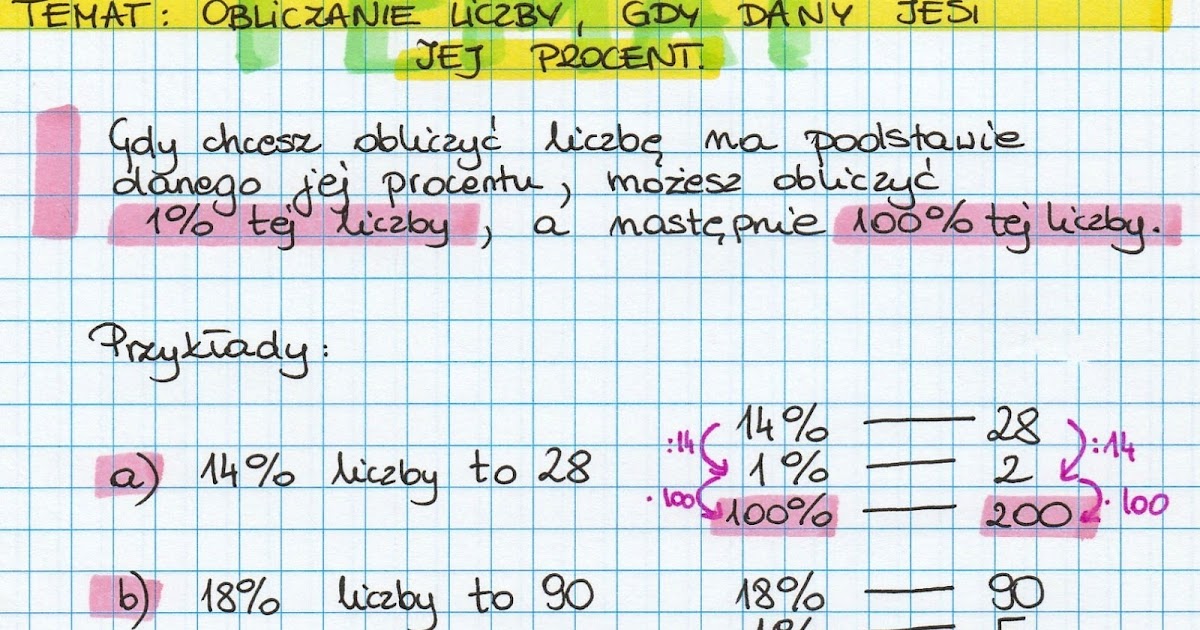 TEMAT: OBLICZANIE LICZBY, GDY DANY JEST
JEJ PROCENT.
Gdy chcesz obliczyć liczbę na podstawie
danego jej procentu, możesz obliczyć
1% tej liczby, a następnie 100% tej liczby.
Przykłady:
14% — 28
:14 :14
a) 14% liczby to 28 1% — 2
·100 ·100
100% — 200
b) 18% liczby to 90 18% — 90
1% — 5